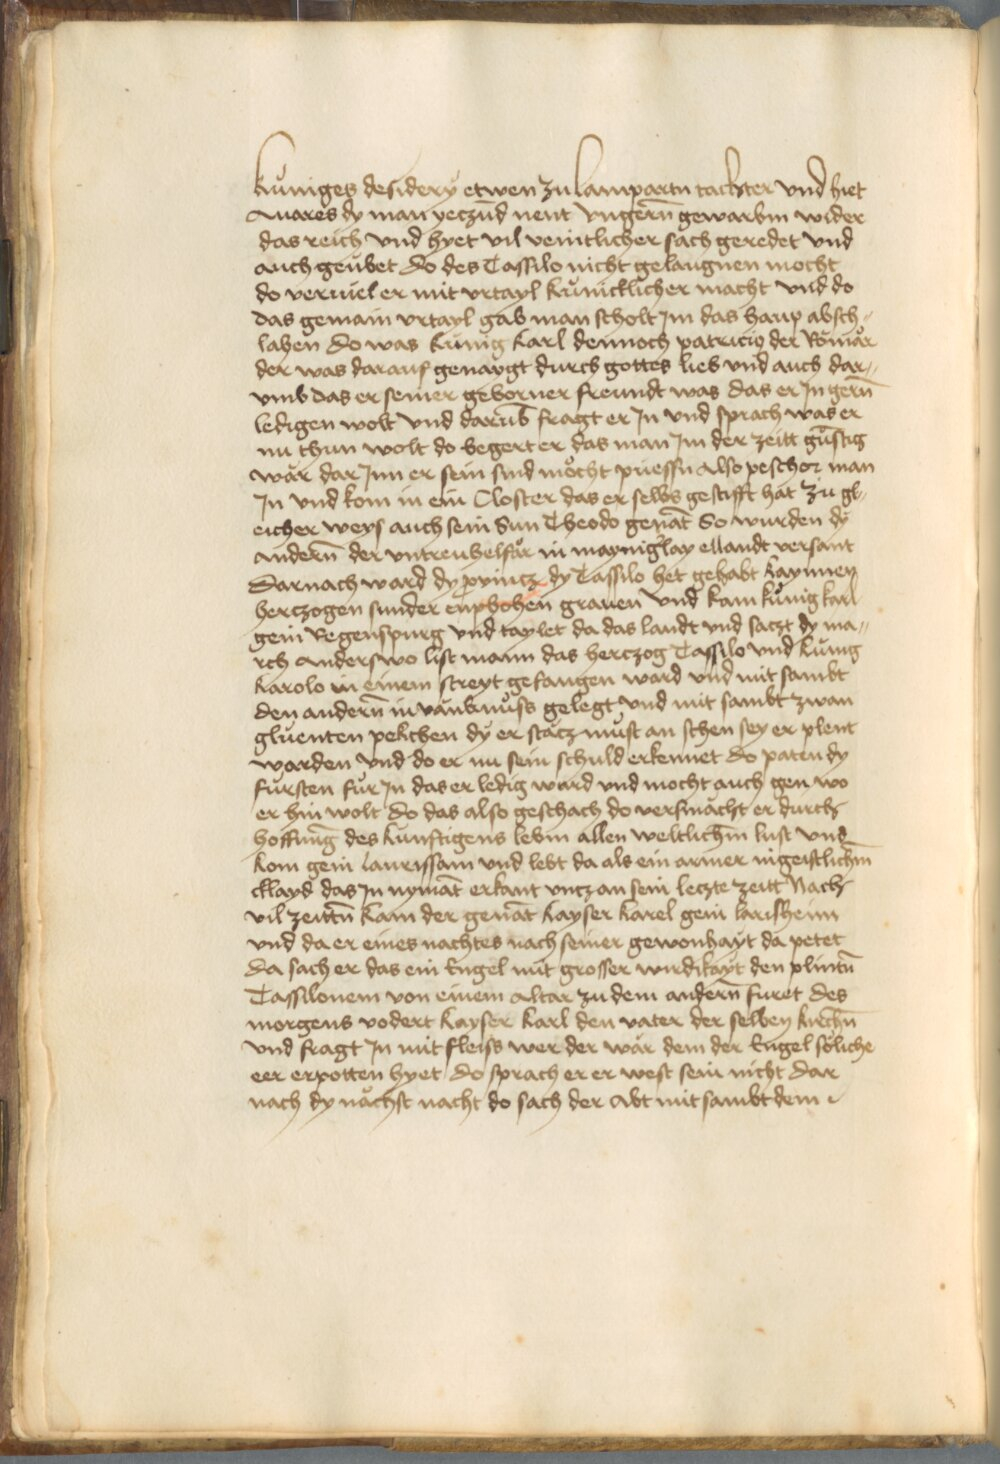 kuniges desidery etwen zu lampartn tachter vnd hiet
Auares dy man yeczūd nent vngerñ gewarbm wider
das reich vnd hyet vil veintlicher sach geredet vnd
auch geübet do des Tassilo nicht gelaugnen mocht
do verviel er mit vrtayl kunicklicher macht vnd do
das gemain vrtayl gab man scholt Jm das haup absch-
lahen do was kunig karl dennoch patriciꝫ der Römår
der was darauf genaygt durch gottes lieb vnd auch dar-
vmb das er seiner geborner freundt was das er Jn gerñ
ledigen wolt vnd darūb fragt er Jn vnd sprach was er
nu thun wolt do begert er das man Jm der zeitt gůstig
wår dar Jnn er sein sind möcht puessn Also peschor man
Jn vnd kom in ein Closter das er selbs gestifft hat Zu gl-
eicher weys auch sein Sun Theodo genāt So wurden dy
anderñ der vntreuhelfår in maynigslay ellandt versant
Darnach ward dy prouincz dy Tassilo het gehabt kaynnen
herczogen sunder enphohen grauen vnd kam kunig karl
gein Regenspurg vnd taylet da das landt vnd saczt dy ma-
rch anderswo list mann das herczog Tassilo vnd kunig
karolo in einem streyt gefangen ward vnd mit sambt
den anderñ in vånknuss gelegt vnd mit sambt zwan
gluenten pekchen dy er stäcz must an sehen sey er plent
warden vnd do er nu sein schuld erkennet do paten dy
fürsten für Jn das er ledig ward vnd mocht auch gen wo
er hin wolt do das also geschach do versmächt er durch
hoffnūg des kunftigens lebm allen weltlichm̄ lust vnd
kom gein Laurissam vnd lebt da als ein armer in geistlichm̄
cklayd das Jn nymāt erkant vncz an sein leczte zeitt Nach
vil zeittñ kam der genāt kayser karel gein larisheim
vnd da er eines nachtes nach seiner gewonhayt da petet
Da sach er das ein Engel mit grosser wirdikayt den plintñ
Tassilonem von einem altar zu dem anderñ furet des
morgens vodert kayser karl den vater der selben kirchñ
vnd fragt Jn mit fleiss wer der wår dem der Engel söliche
eer erpotten hyet do sprach er er west sein nicht dar
nach dy nächst nacht do sach der Abt mit sambt dem